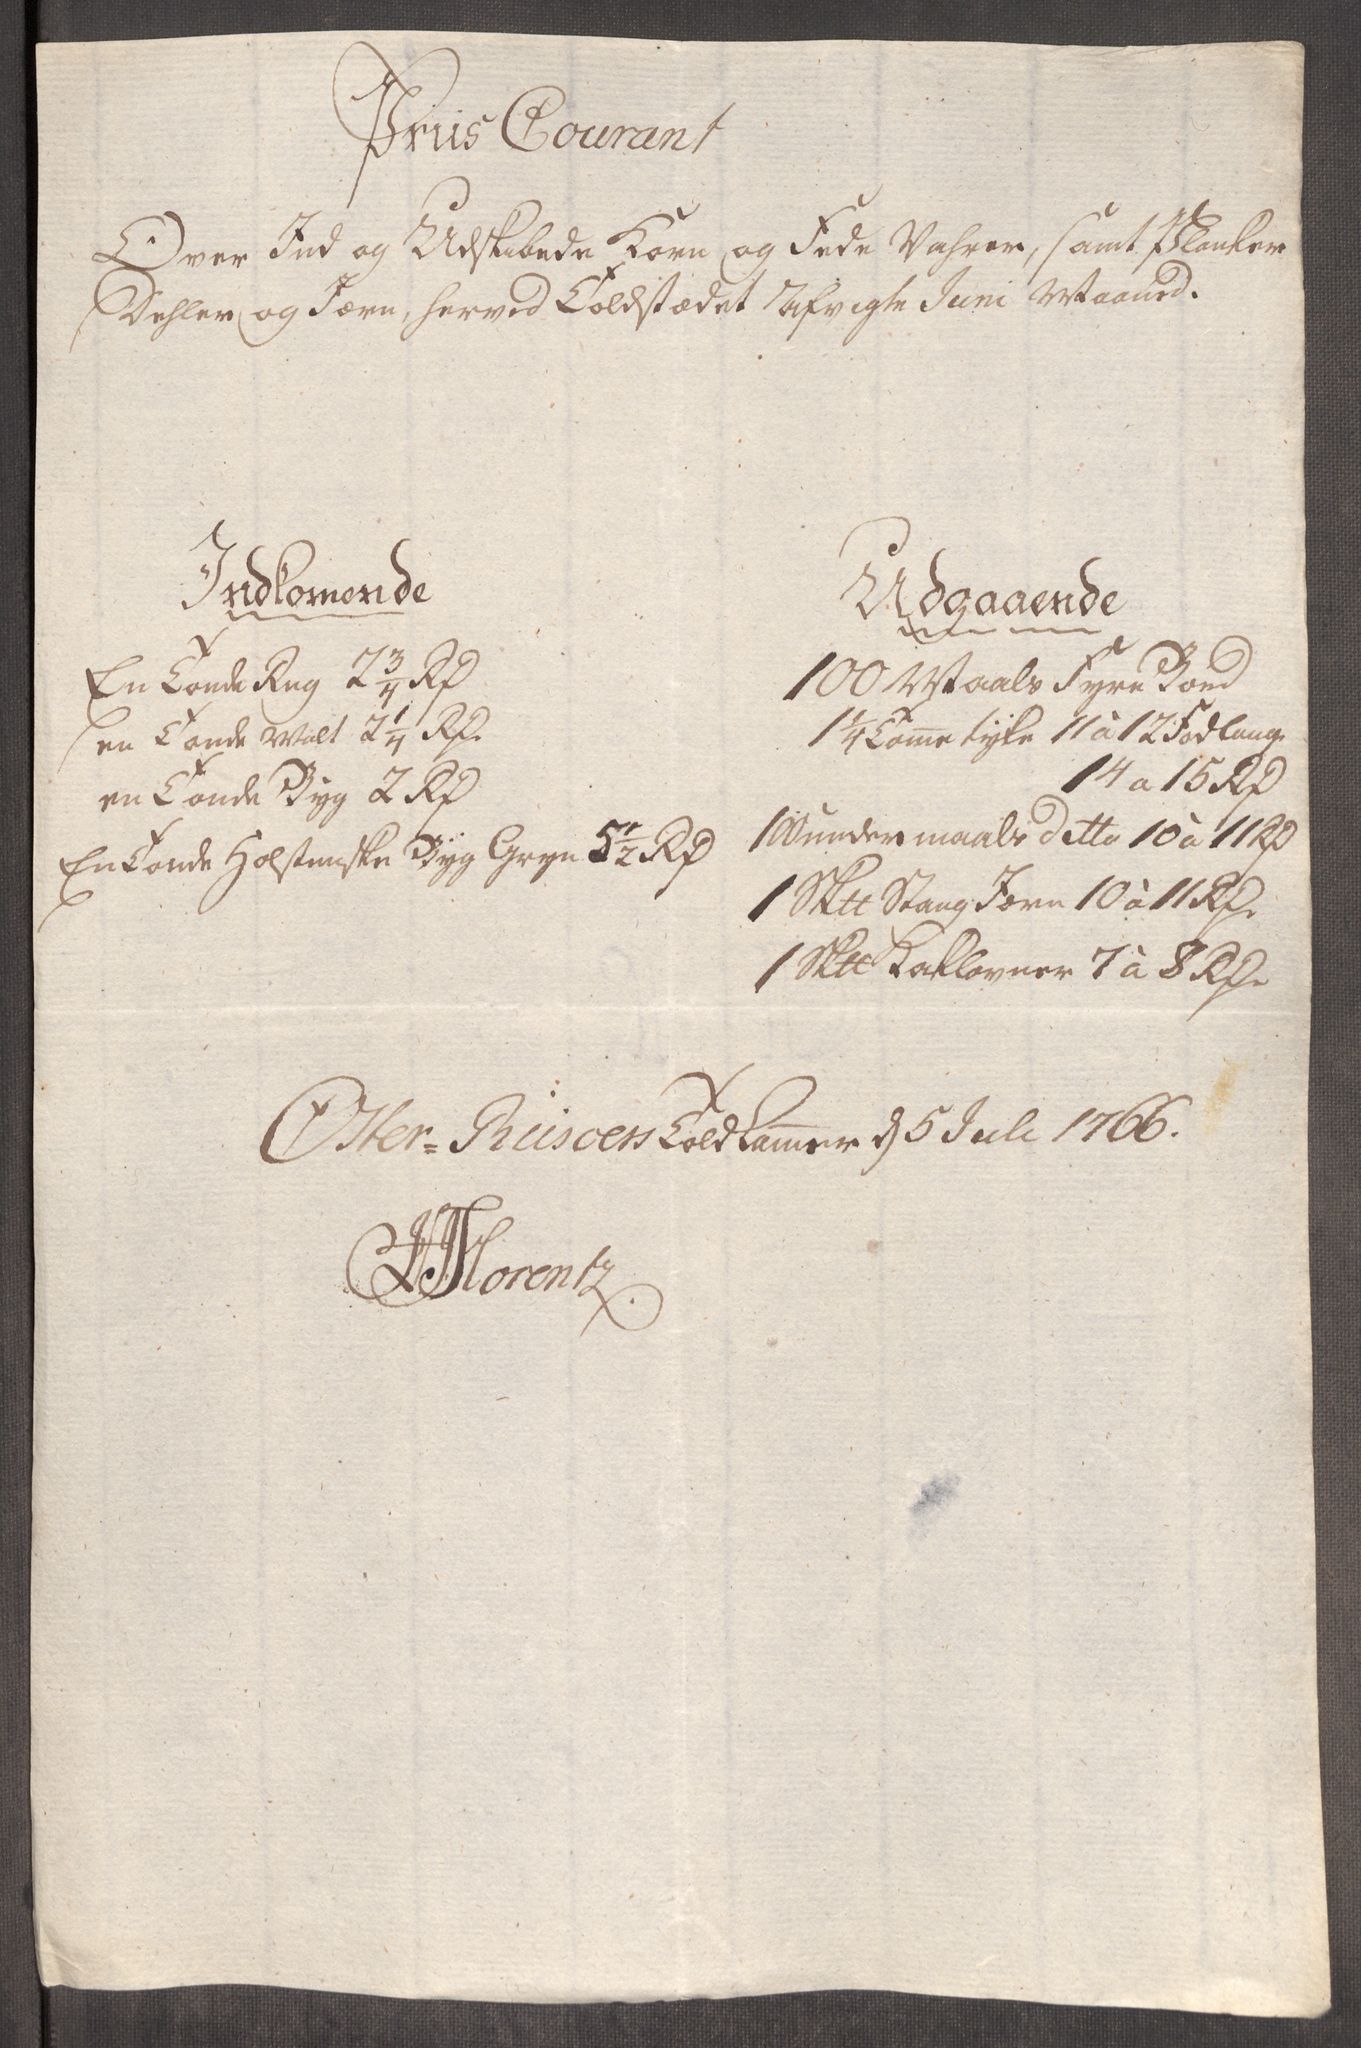 Priis Courant
Over Ind og Udskibede Korn og Fede Vahrer, samt Planker
Dehler og Jærn, herved Toldstædet udi afvigte Juni Maaned.
Indkomende
En Tønde Rug 2 3/4 Rd
en Tønde Malt 2 1/4 Rd.
en Tønde Byg 2 Rd
En Tønde Holstenske Byg Gryn 5 1/2 Rd
Udgaaende
100 Maals Fyre Bord
1 1/4 Tomme tyke 11 à 12 Fod lange
14 a 15 Rd
100 under maals ditto 10 à 11 Rd
1 Sk℔ Stang Jærn 10 à 11 Rd.
1 Sk℔ Kakkovner 7 à 8 Rd.
Øster=Riisøers Toldkammer d 5 Juli 1766.
Florentz